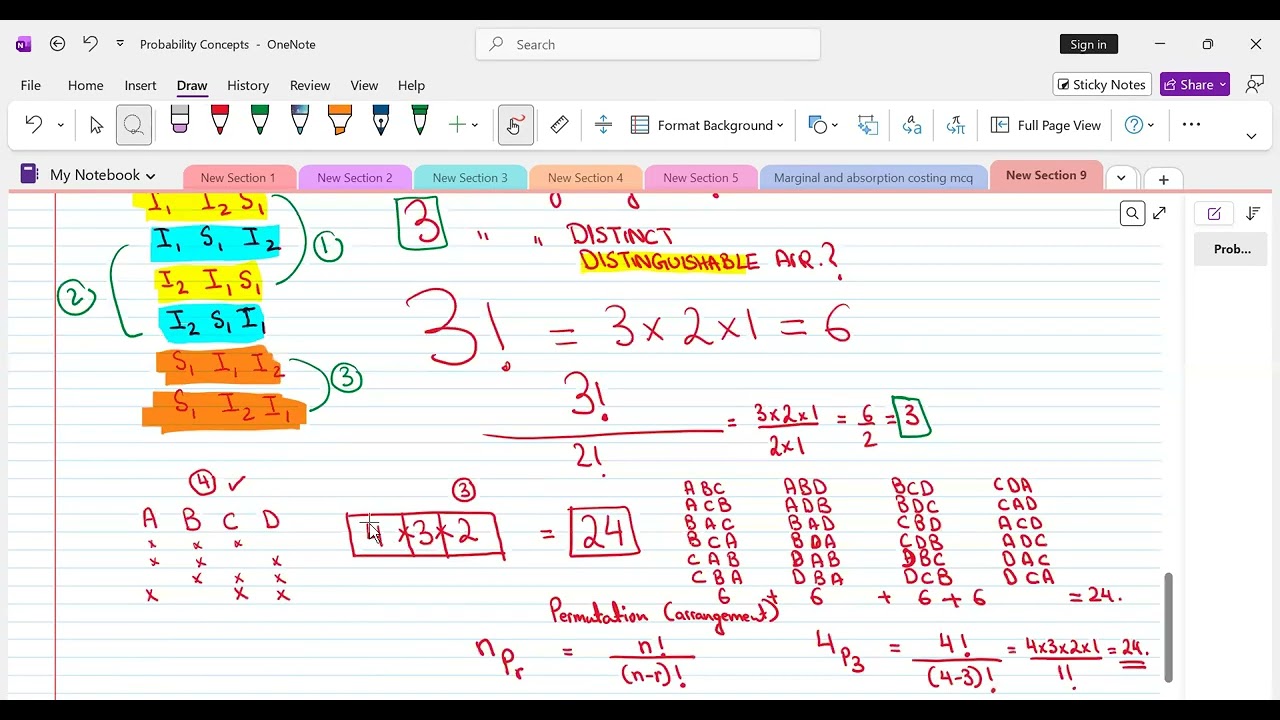 Probability Concepts - OneNote
Search
Sign in
File Home Insert Draw History Review View Help
Sticky Notes
Share
Format Background
Full Page View
My Notebook
New Section 1
New Section 2
New Section 3
New Section 4
New Section 5
Marginal and absorption costing mcq
New Section 9
Prob...
I₁ I₂ S₁
I₁ S₁ I₂
I₂ I₁ S₁
I₂ S₁ I₁
S₁ I₁ I₂
S₁ I₂ I₁
①
②
③
3 " " DISTINCT
DISTINGUISHABLE Arr.?
3! = 3 x 2 x 1 = 6
3!
2!
= 3x2x1 = 6 = 3
2x1 2
④ ✓
A B C D
x x x
x x x
x x x
x x x
③
4 * 3 * 2 = 24
ABC ABD BCD CDA
ACB ADB BDC CAD
BAC BAD CBD ACD
BCA BDA CDB ADC
CAB DAB DBC DAC
CBA DBA DCB DCA
6 + 6 + 6 + 6 = 24.
Permutation (arrangement)
nPr = n!
(n-r)!
4P3 = 4! = 4x3x2x1 = 24.
(4-3)! 1!